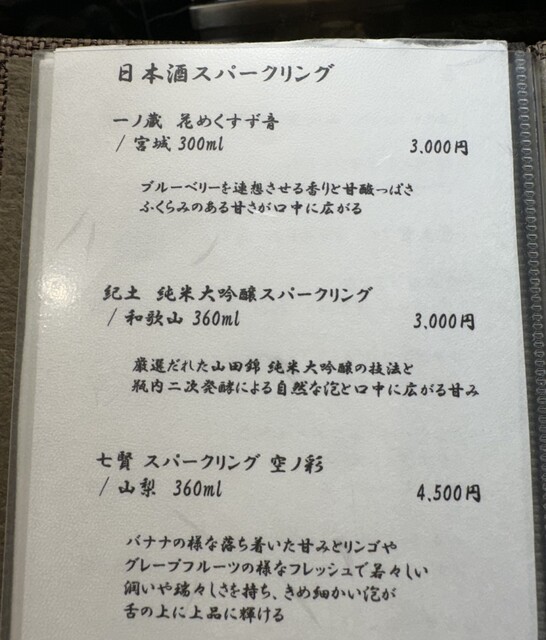 日本酒スパークリング
一ノ蔵 花めくすず音
/ 宮城 300ml 3.000円
ブルーベリーを連想させる香りと甘酸っぱさ
ふくらみのある甘さが口中に広がる
紀土 純米大吟醸スパークリング
/ 和歌山 360ml 3.000円
厳選だれた山田錦 純米大吟醸の技法と
瓶内二次発酵による自然な泡と口中に広がる甘み
七賢 スパークリング 空ノ彩
/ 山梨 360ml 4.500円
バナナの様な落ち着いた甘みとリンゴや
グレープフルーツの様なフレッシュで若々しい
潤いや瑞々しさを持ち、きめ細かい泡が
舌の上に上品に輝ける